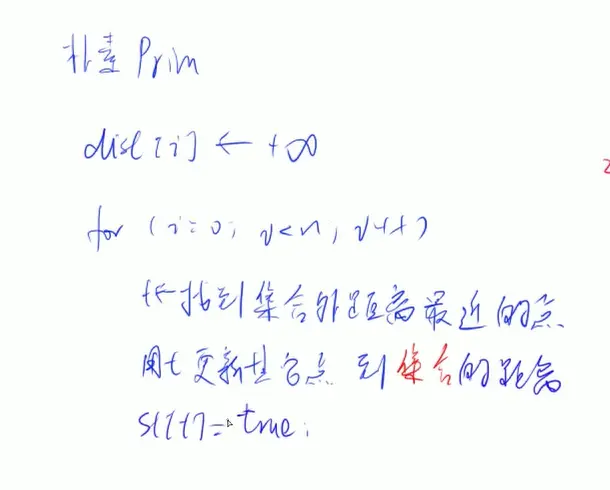 朴素Prim
dist[i] ← +∞
for (i=0; i<n; i++)
t←找到集合外距离最近的点
用t更新其它点到集合的距离
st[t]=true;